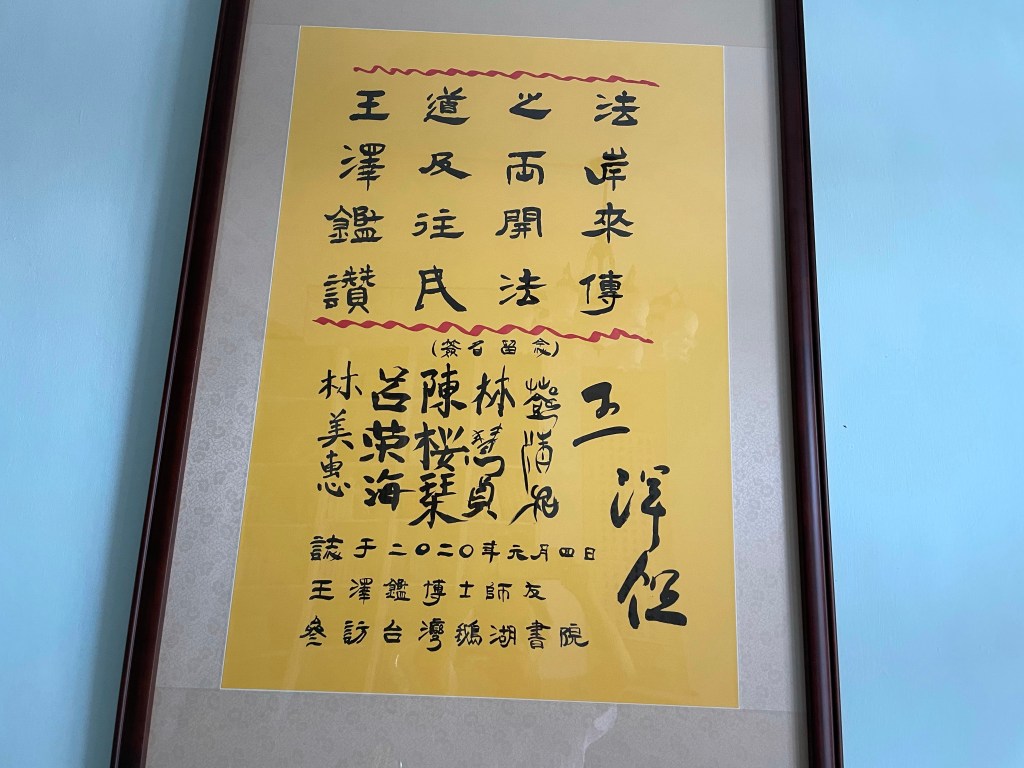 王道之法
澤及兩岸
鑑往開來
讚民法傳
(簽名留念)
林慧貞
陳桜琹
呂荣海
林美惠
誌于二〇二〇年元月四日
王澤鑑博士師友
參訪台灣鵝湖書院